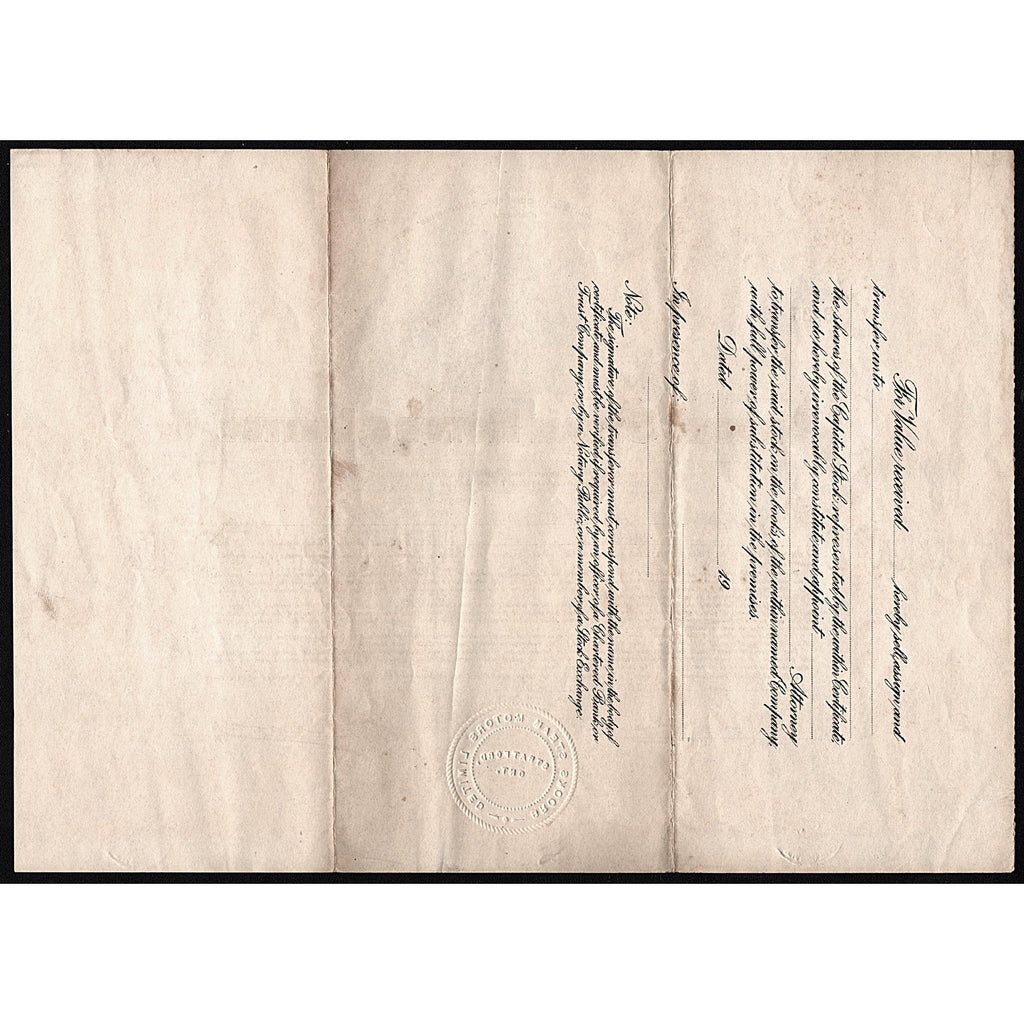 For Value received hereby sell, assign, and
transfer unto
the shares of the Capital Stock represented by the within Certificate,
and do hereby irrevocably constitute and appoint
Attorney
to transfer the said stock on the books of the within named Company,
with full power of substitution in the premises.
Dated 19
In presence of:
Note:
The signature of the transferor must correspond with the name in the body of
certificate and must be verified if required by an officer of a Chartered Bank, or
Trust Company, or by a Notary Public, or a member of a Stock Exchange.
BROOKS STEAM MOTORS LIMITED
ONT.